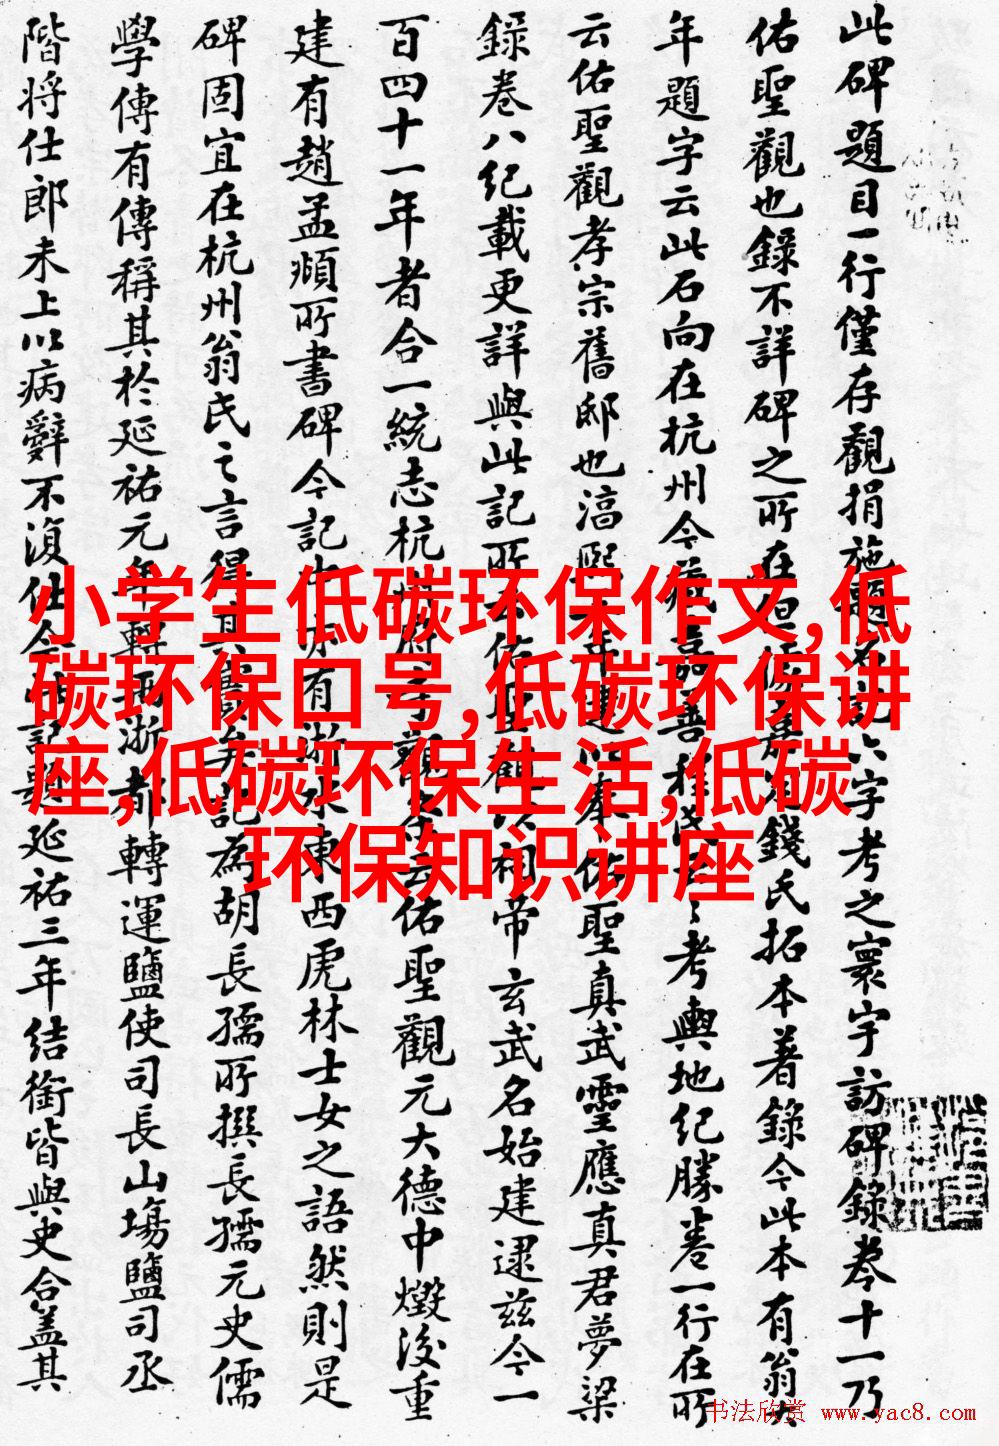 此碑題目一行僅存觀捐施題名記六字考之寰宇訪碑錄卷十一乃
佑聖觀也錄不詳碑之所在但錢氏拓本著錄今此本有翁大
年題字云此石向在杭州今藏嘉善程氏云々考輿地紀勝卷一行在所
云佑聖觀孝宗舊邸也淳熙年建以奉佑聖真武靈應真君夢梁
錄卷八紀載更詳與此記所云佑聖觀以祠帝玄武名始建逮茲今一
百四十一年者合一統志杭州府寺觀云佑聖觀元大德中燬後重
建有趙孟頫所書碑今記中亦有浙水東西虎林士女之語然則是
碑固宜在杭州翁氏之言得其實矣記為胡長孺所撰長孺元史儒
學傳有傳稱其於延祐元年轉兩浙都轉運鹽使司長山場鹽司丞
階將仕郎未上以病辭不復仕今此記題延祐三年結銜皆與史合蓋其
小学生低碳环保作文,低
碳环保口号,低碳环保讲
座,低碳环保生活,低碳
环保知识讲座
书法欣赏 www.yac8.com